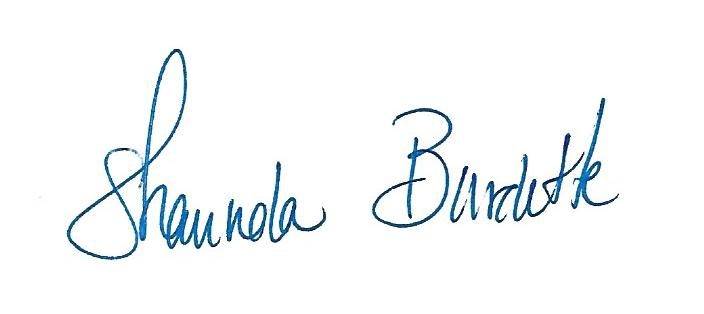 Shaunda Burdette